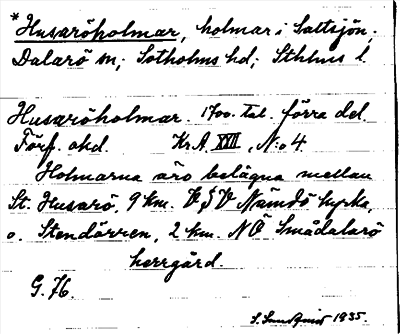 *Husaröholmar, holmar i Saltsjön;
Dalarö sn; Sotholms hd; Sthlms l.
Husaröholmar. 1700-tal. förra del.
Förf. okd. Kr.A. XVII, N:o 4.
Holmarna äro belägna mellan
St. Husarö, 9 km. VSV Nämdö kyrka,
o. Stendörren, 2 km. NÖ Smådalarö
herrgård.
G. 76.
1935.